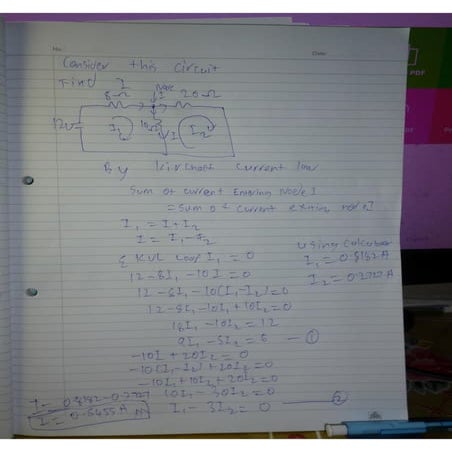 No:
Date:
Consider this circuit
Find I
Node
8Ω I 20Ω
12V I₁ 10Ω I I₂
By Kirchoff current law
Sum of current Entering Node I
= Sum of current exiting node I
I₁ = I + I₂
I = I₁ - I₂
Σ KVL Loop I₁ = 0
12 - 8I₁ - 10I = 0
12 - 8I₁ - 10(I₁ - I₂) = 0
12 - 8I₁ - 10I₁ + 10I₂ = 0
18I₁ - 10I₂ = 12
9I₁ - 5I₂ = 6 — ①
-10I + 20I₂ = 0
-10(I₁ - I₂) + 20I₂ = 0
-10I₁ + 10I₂ + 20I₂ = 0
10I₁ - 30I₂ = 0
I₁ - 3I₂ = 0 — ②
Using Calculator
I₁ = 0.8182 A
I₂ = 0.2727 A
I = 0.8182 - 0.2727
I = 0.5455 A
PDF